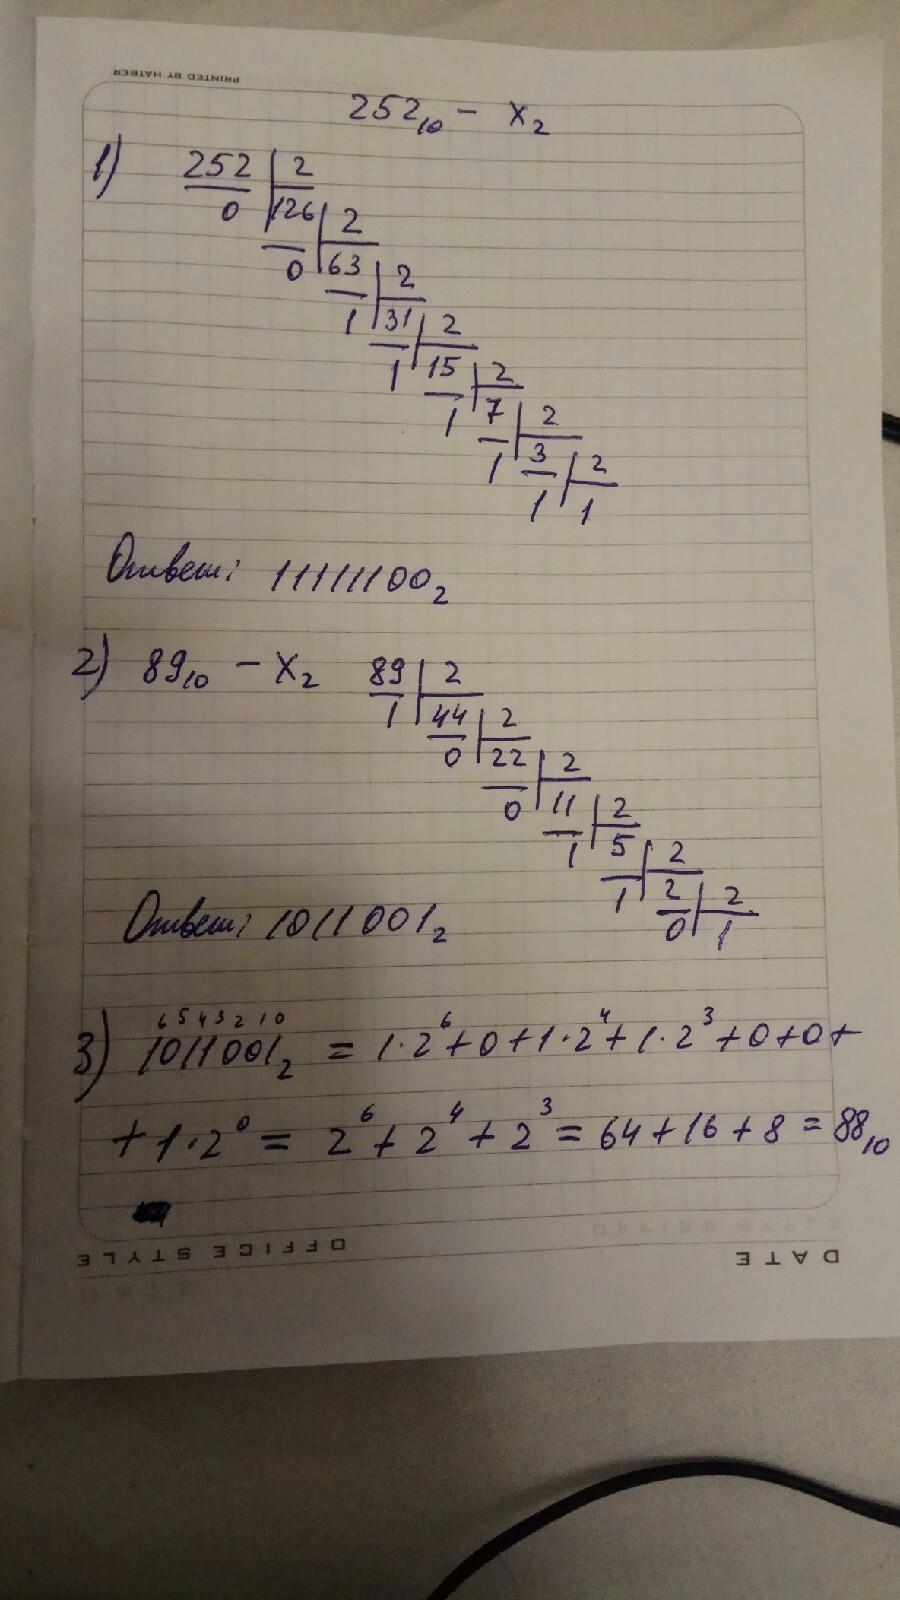 PRINTED BY HATBER
252₁₀ – x₂
1) 252 | 2
0 126 | 2
0 63 | 2
1 31 | 2
1 15 | 2
1 7 | 2
1 3 | 2
1 1
Ответ: 11111100₂
2) 89₁₀ – x₂ 89 | 2
1 44 | 2
0 22 | 2
0 11 | 2
1 5 | 2
1 2 | 2
0 1
Ответ: 1011001₂
6 5 4 3 2 1 0
3) 1011001₂ = 1·2⁶+0+1·2⁴+1·2³+0+0+
+1·2⁰ = 2⁶+2⁴+2³ = 64+16+8 = 88₁₀
OFFICE STYLE OFFICE STYLE
DATE